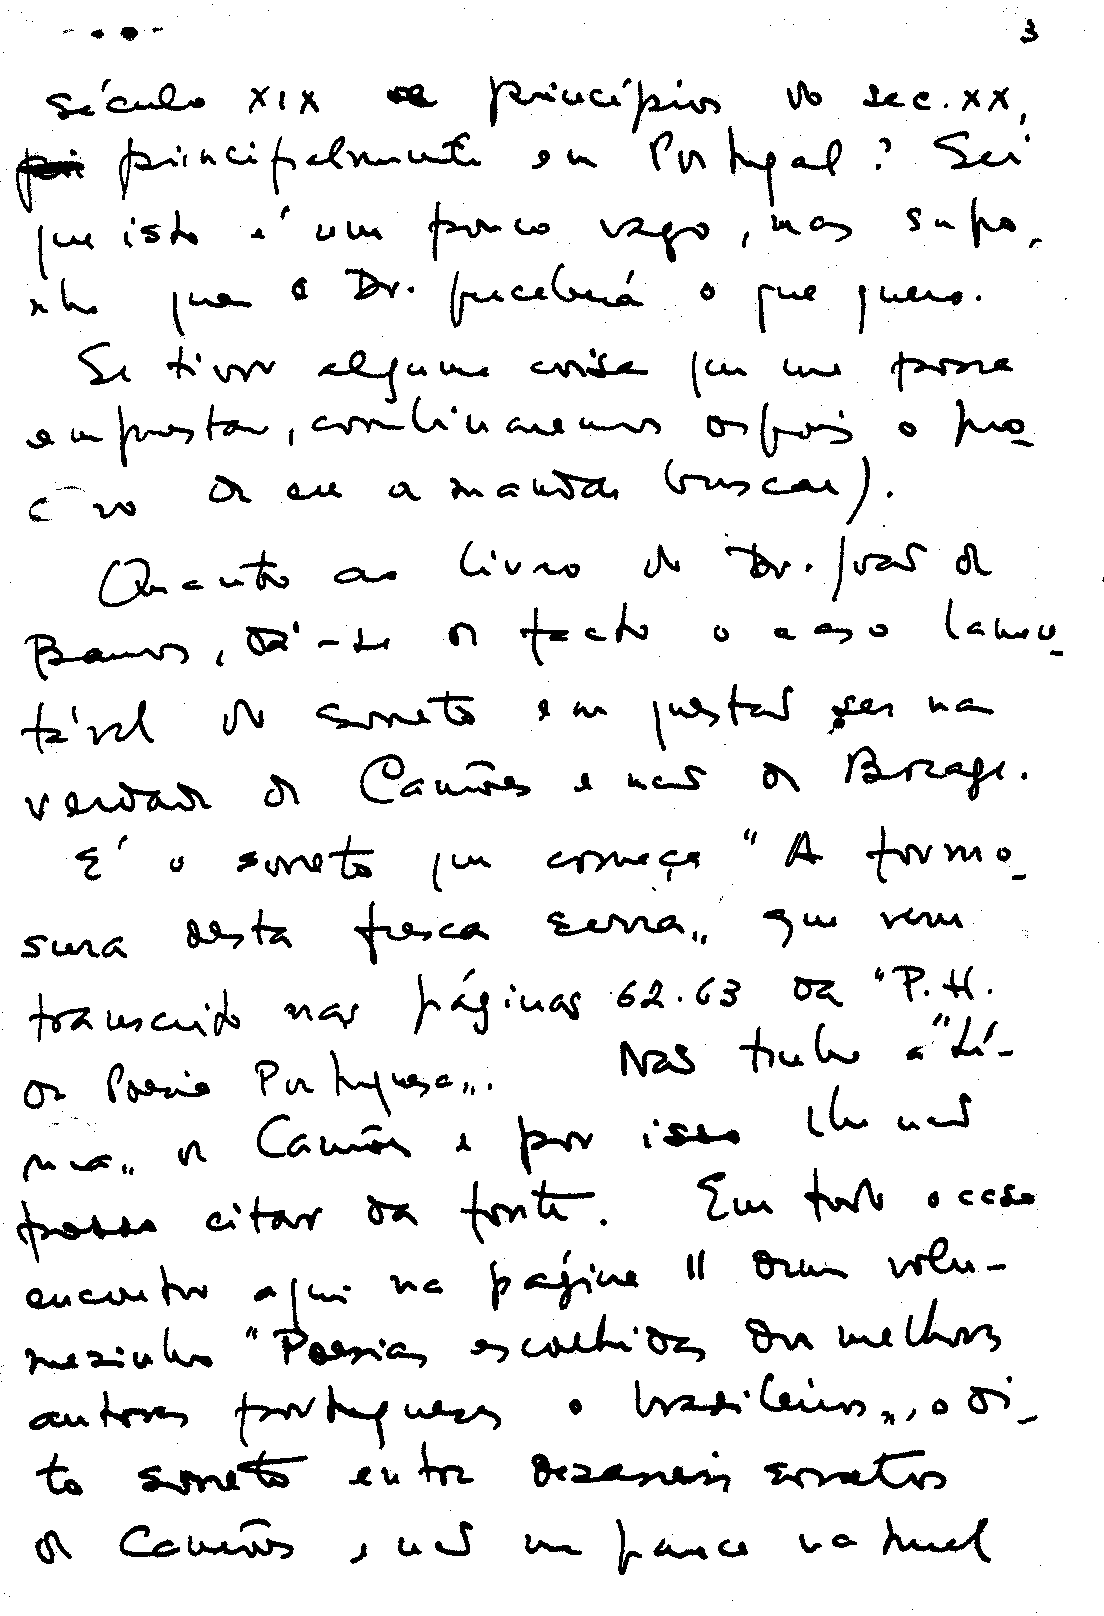 3
século XIX e princípios do sec. XX,
principalmente em Portugal? Sei
que isto é um pouco vago, mas supo-
nho que o Dr. perceberá o que quero.
Se tiver alguma coisa que me possa
emprestar, combinaremos depois o pro-
cesso de eu a mandar buscar).
Quanto ao livro do Dr. João de
Barros, dá-se de facto o caso lamen-
tável do soneto em questão ser na
verdade de Camões e não de Bocage.
É o soneto que começa "A formo-
sura desta fresca serra„ que vem
transcrito nas páginas 62-63 da "P.H.
da Poesia Portuguesa„. Não tenho a "Lí-
rica„ de Camões e por isso lhe não
posso citar da fonte. Em todo o caso
encontro aqui na página 11 dum volu-
mezinho "Poesias escolhidas dos melhores
autores portugueses e brasileiros„, o di-
to soneto entre dezasseis sonetos
de Camões, e não me parece natural